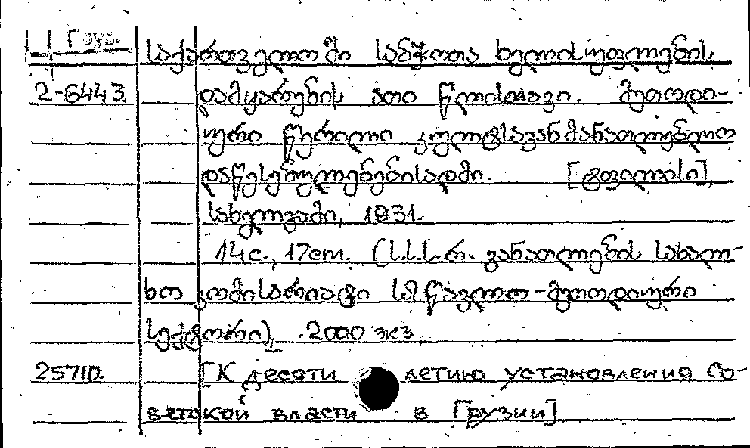 Груз.
საქართველოში საბჭოთა ხელისუფლების
2-6443 დამყარების ათი წლისთავი. მეთოდი-
ური წერილი კულტსაგანმანათლებლო
დაწესებულებებისადმი. [ტფილისი],
სახელგამი, 1931.
14 с., 17 cm. (ს.ს.ს.რ. განათლების სახალ-
ხო კომისარიატი სასწავლო-მეთოდიური
სექტორი), 2000 экз.
25710. [К десятилетию установления Со-
ветской власти в Грузии]